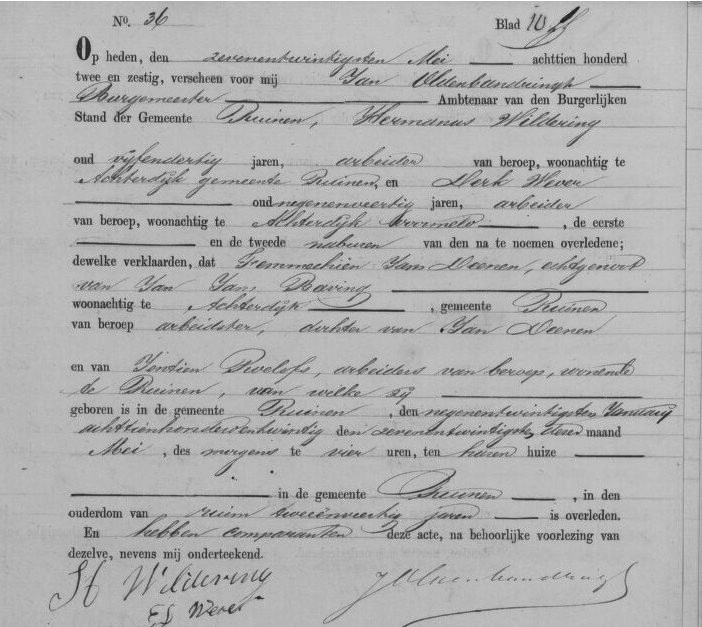 No. 36 Blad 10
Op heden, den zevenentwintigsten Mei achttien honderd
twee en zestig, verscheen voor mij Jan Oldenbandringh
Burgemeester Ambtenaar van den Burgerlijken
Stand der Gemeente Ruinen, Hermanus Wildering
oud vijfendertig jaren, arbeider van beroep, woonachtig te
Achterdijk gemeente Ruinen, en Derk Wever
oud negenenveertig jaren, arbeider
van beroep, woonachtig te Achterdijk voormeld, de eerste
en de tweede naburen van den na te noemen overledene;
dewelke verklaarden, dat Femmechien Jans Deenen, echtgenoot
van Jan Jans Raving
woonachtig te Achterdijk, gemeente Ruinen
van beroep arbeidster, dochter van Jan Deenen
en van Roelofs, arbeiders van beroep, wonende
te Ruinen, van welke zij
geboren is in de gemeente Ruinen, den negenentwintigsten January
achttienhonderdentwintig den zevenentwintigste, dezer maand
Mei, des morgens te vier uren, ten haren huize
in de gemeente Ruinen, in den
ouderdom van ruim tweeënveertig jaren is overleden.
En hebben comparanten deze acte, na behoorlijke voorlezing van
dezelve, nevens mij onderteekend.
H Wildering
Wever